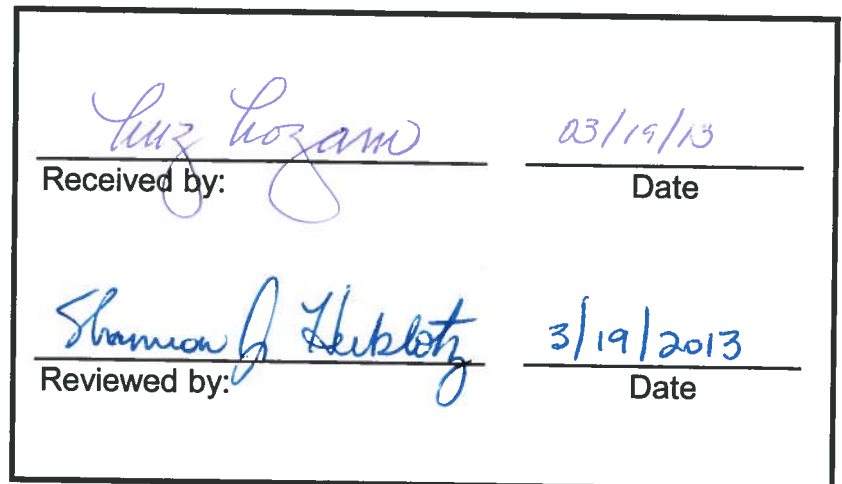 Luz Lozano 03/19/13
Received by: Date
Shannon J Herklotz 3/19/2013
Reviewed by: Date